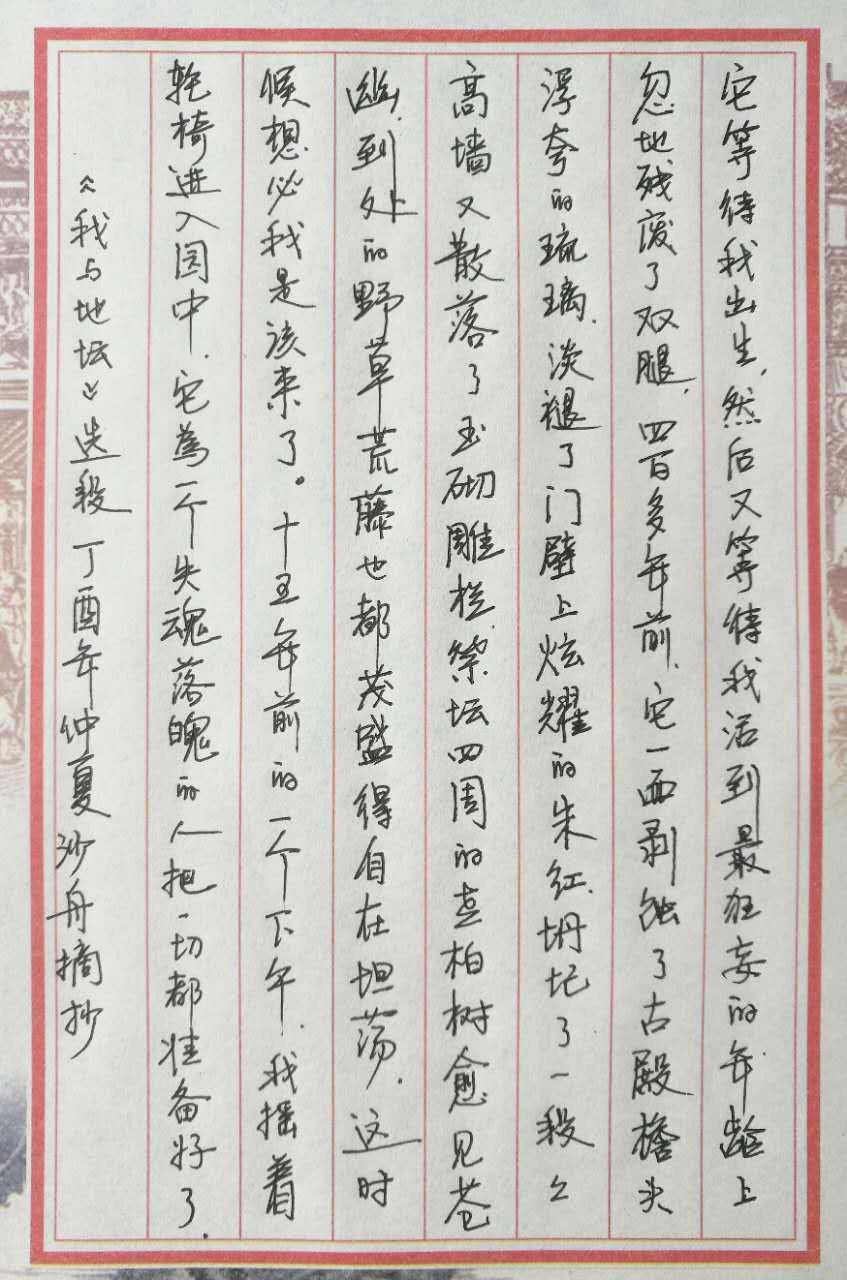 它等待我出生,然后又等待我活到最狂妄的年龄上
忽地残废了双腿,四百多年前,它一面剥蚀了古殿檐头
浮夸的琉璃,淡褪了门壁上炫耀的朱红,坍圮了一段又
高墙又散落了玉砌雕栏,祭坛四周的老柏树愈见苍
幽,到处的野草荒藤也都茂盛得自在坦荡,这时
候想必我是该来了。十五年前的一个下午,我摇着
轮椅进入园中,它為一个失魂落魄的人把一切都准备好了.
《我与地坛》选段 丁酉年仲夏沙舟摘抄